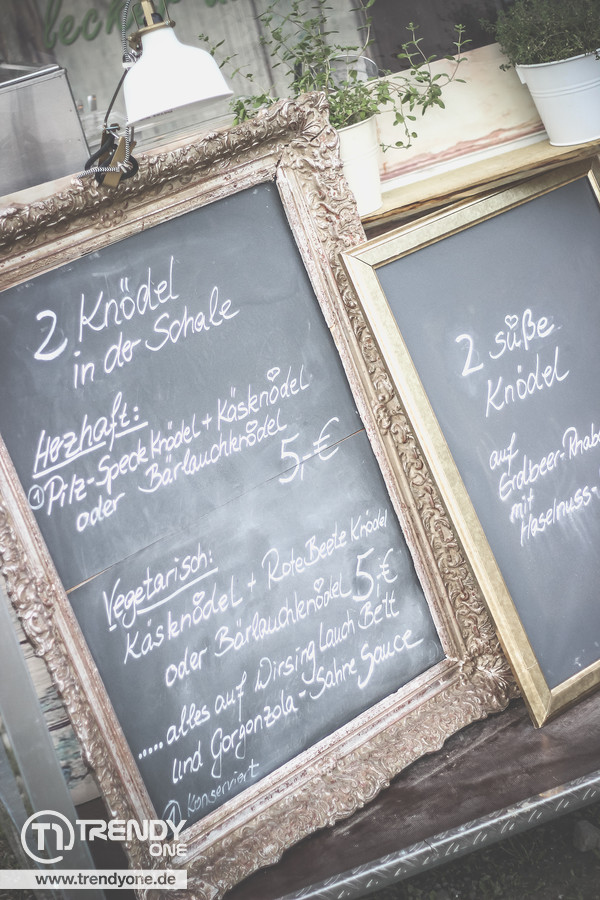 lecker
2 Knödel
in der Schale
Herzhaft:
① Pilz-Speck Knödel + Käseknödel
oder Bärlauchknödel
5,-€
Vegetarisch:
Käseknödel + Rote Beete Knödel
oder Bärlauchknödel 5,-€
..... alles auf Wirsing Lauch Bett
und Gorgonzola-Sahne Sauce
① Konserviert
2 süße
Knödel
auf
Erdbeer-Rhaba
mit
Haselnuss-
TRENDY
ONE
www.trendyone.de